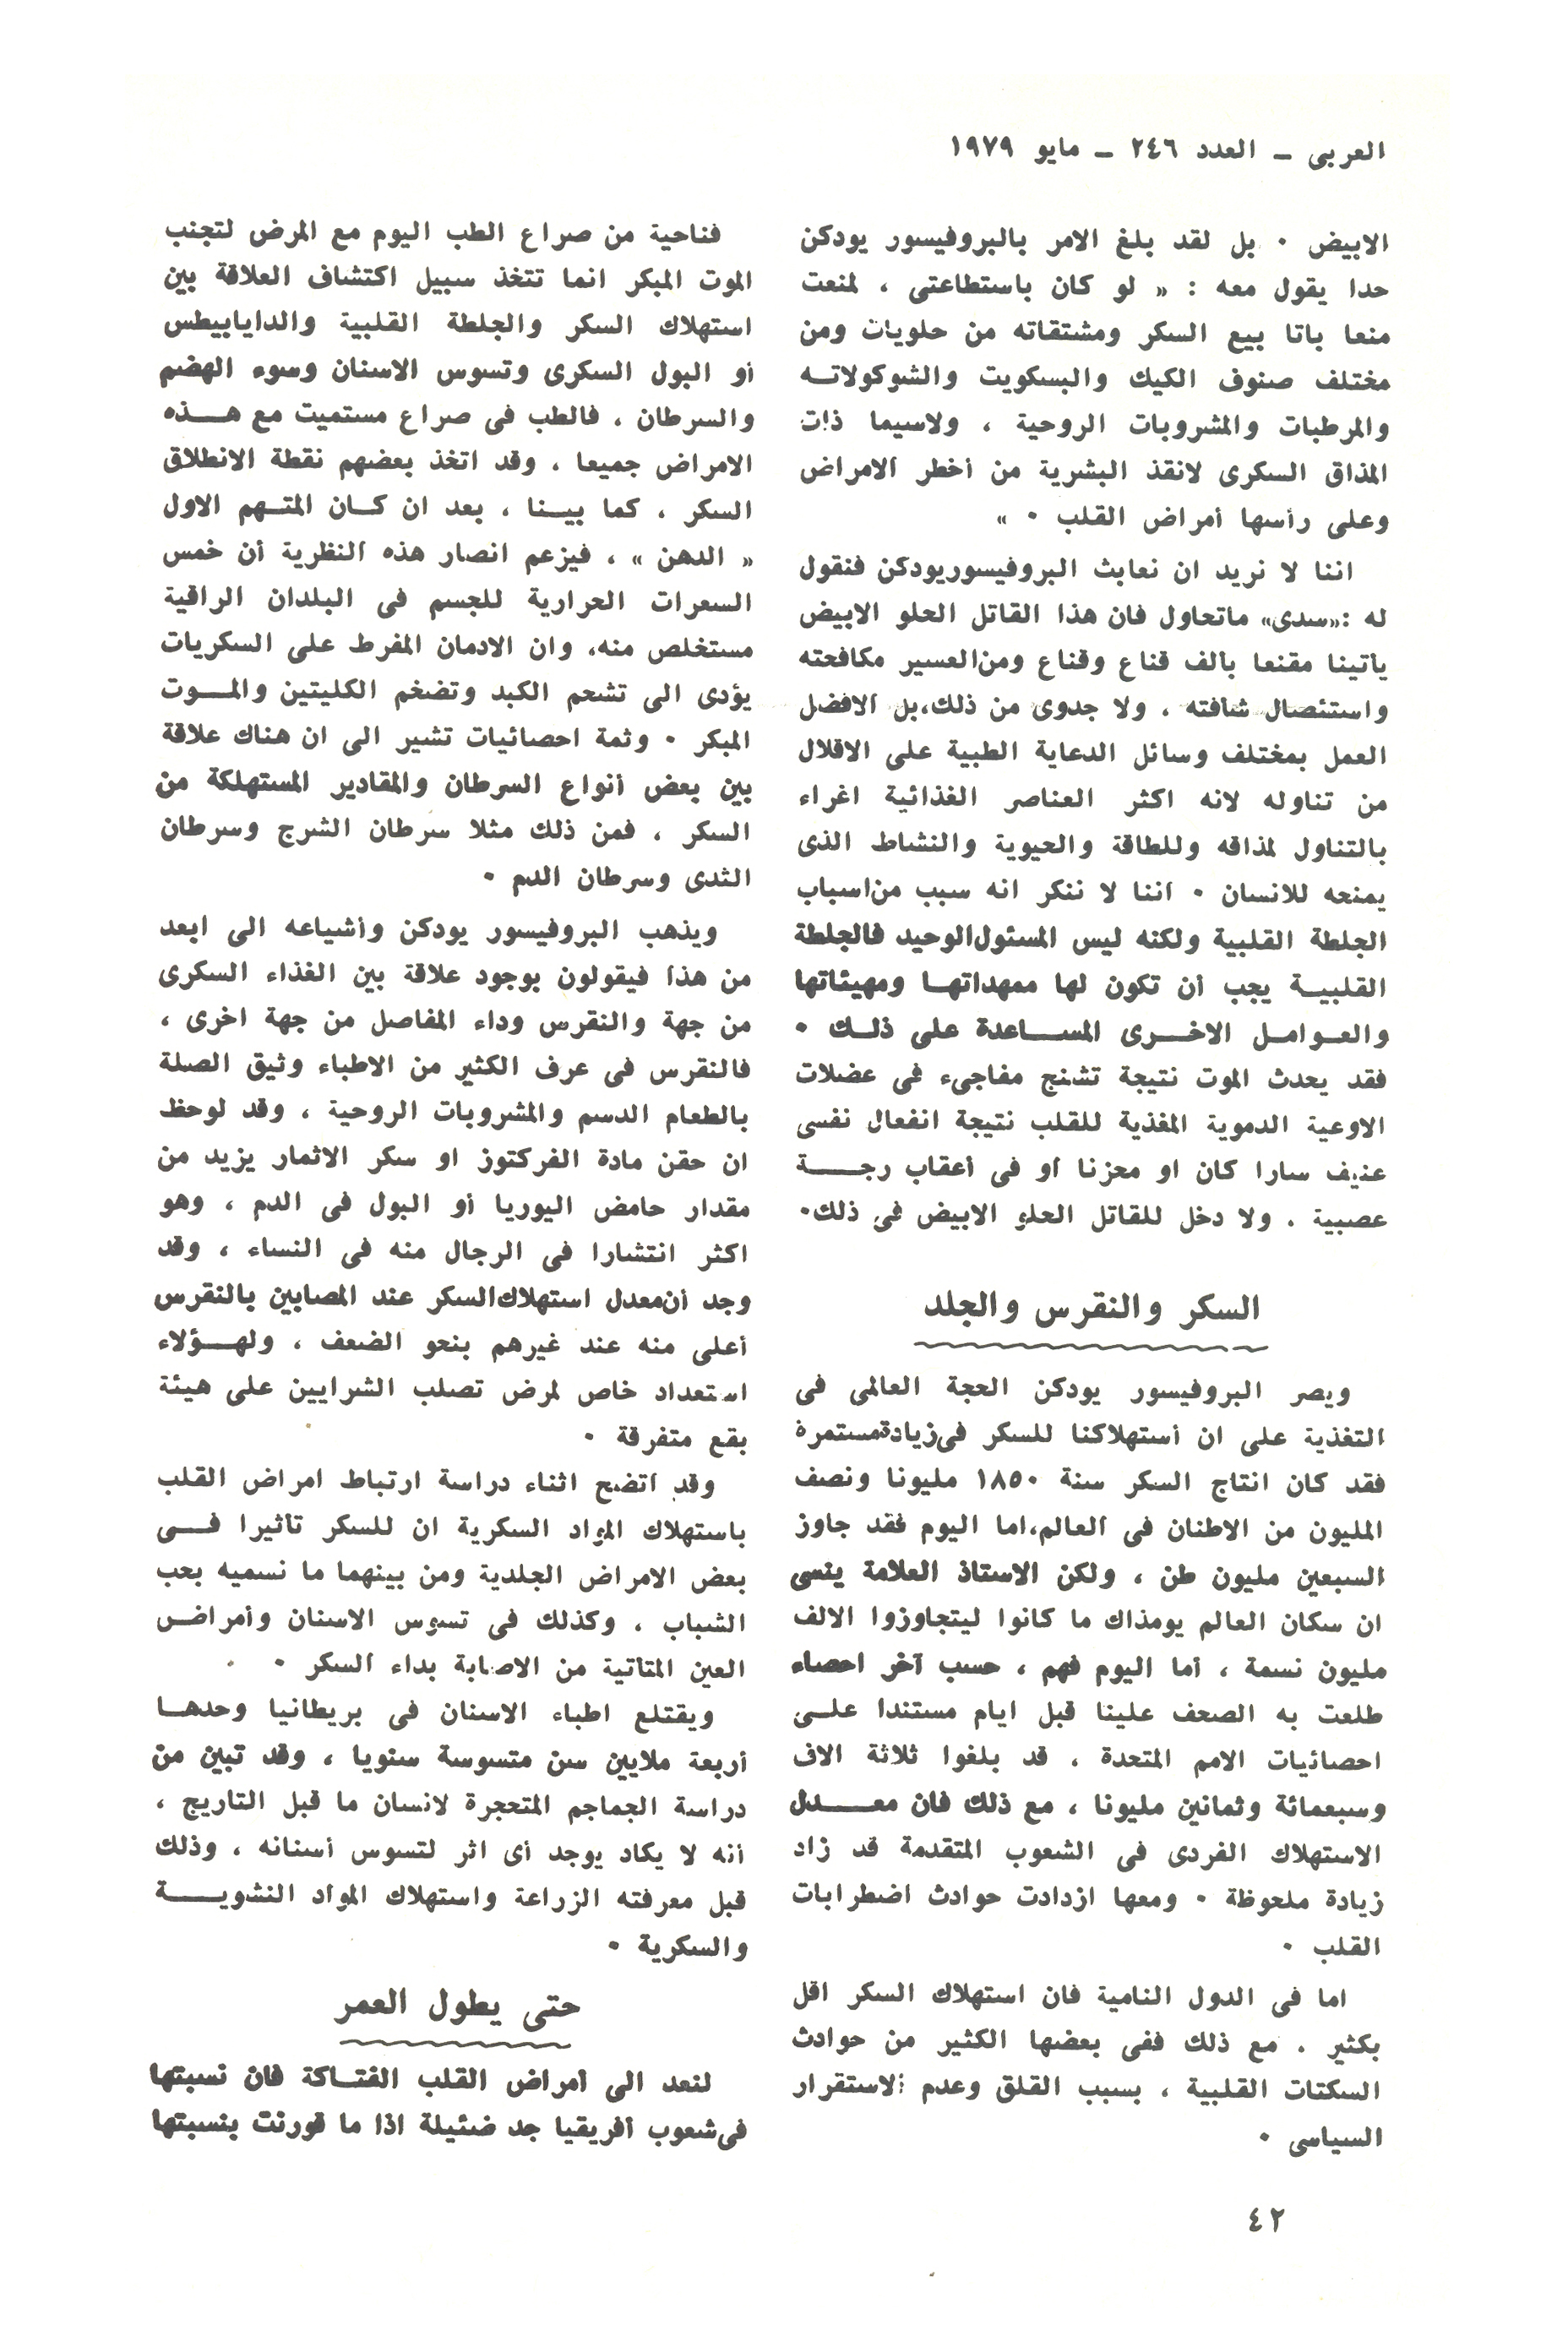 العربى ـ العدد ٢٤٦ ـ مايو ١٩٧٩
الابيض ٠ بل لقد بلغ الامر بالبروفيسور يودكن
حدا يقول معه : « لو كان باستطاعتى ، لمنعت
منعا باتا بيع السكر ومشتقاته من حلويات ومن
مختلف صنوف الكيك والبسكويت والشوكولاتـه
والمرطبات والمشروبات الروحية ، ولاسيما ذات
المذاق السكرى لانقذ البشرية من أخطر الامراض
وعلى رأسها أمراض القلب ٠ »
اننا لا نريد ان نعابث البروفيسوريودكن فنقول
له :«سدى» ماتحاول فان هذا القاتل الحلو الابيض
يأتينا مقنعا بألف قناع وقناع ومن العسير مكافحته
واستئصال شافته ، ولا جدوى من ذلك،بل الافضل
العمل بمختلف وسائل الدعاية الطبية على الاقلال
من تناوله لانه اكثر العناصر الغذائية اغراء
بالتناول لمذاقه وللطاقة والحيوية والنشاط الذى
يمنحه للانسان ٠ اننا لا ننكر انه سبب من اسباب
الجلطة القلبية ولكنه ليس المسئول الوحيد فالجلطة
القلبيـة يجب أن تكون لها ممهداتهـا ومهيئاتها
والعـوامـل الاخـرى المسـاعدة على ذلـك ٠
فقد يحدث الموت نتيجة تشنج مفاجىء فى عضلات
الاوعية الدموية المغذية للقلب نتيجة انفعال نفسى
عنيف سارا كان او محزنا أو فى أعقاب رجـــة
عصبية ٠ ولا دخل للقاتل الحلو الابيض فى ذلك٠
السكر والنقرس والجلد
ويصر البروفيسور يودكن الحجة العالمى فى
التغذية على ان أستهلاكنا للسكر فى زيادة مستمرة
فقد كان انتاج السكر سنة ١٨٥٠ مليونا ونصف
المليون من الاطنان فى العالم،اما اليوم فقد جاوز
السبعين مليون طن ، ولكن الاستاذ العلامة ينسى
ان سكان العالم يومذاك ما كانوا ليتجاوزوا الالف
مليون نسمة ، أما اليوم فهم ، حسب آخر احصاء
طلعت به الصحف علينا قبل ايام مستندا علـى
احصائيات الامم المتحدة ، قد بلغوا ثلاثة الاف
وسبعمائة وثمانين مليونا ، مع ذلك فان معـــدل
الاستهلاك الفردى فى الشعوب المتقدمة قد زاد
زيادة ملحوظة ٠ ومعها ازدادت حوادث اضطرابات
القلب ٠
اما فى الدول النامية فان استهلاك السكر اقل
بكثير ٠ مع ذلك ففى بعضها الكثير من حوادث
السكتات القلبية ، بسبب القلق وعدم الاستقرار
السياسى ٠
فناحية من صراع الطب اليوم مع المرض لتجنب
الموت المبكر انما تتخذ سبيل اكتشاف العلاقة بين
استهلاك السكر والجلطة القلبية والدايابيطس
أو البول السكرى وتسوس الاسنان وسوء الهضم
والسرطان ، فالطب فى صراع مستميت مع هـــذه
الامراض جميعا ، وقد اتخذ بعضهم نقطة الانطلاق
السكر ، كما بيـنا ، بعد ان كـان المتـهم الاول
« الدهن » ، فيزعم انصار هذه النظرية أن خمس
السعرات الحرارية للجسم فى البلدان الراقية
مستخلص منه، وان الادمان المفرط على السكريات
يؤدى الى تشحم الكبد وتضخم الكليتين والمـوت
المبكر ٠ وثمة احصائيات تشير الى ان هناك علاقة
بين بعض أنواع السرطان والمقادير المستهلكة من
السكر ، فمن ذلك مثلا سرطان الشرج وسرطان
الثدى وسرطان الدم ٠
ويذهب البروفيسور يودكن وأشياعه الى ابعد
من هذا فيقولون بوجود علاقة بين الغذاء السكرى
من جهة والنقرس وداء المفاصل من جهة اخرى ،
فالنقرس فى عرف الكثير من الاطباء وثيق الصلة
بالطعام الدسم والمشروبات الروحية ، وقد لوحظ
ان حقن مادة الفركتوز او سكر الاثمار يزيد من
مقدار حامض اليوريا أو البول فى الدم ، وهو
اكثر انتشارا فى الرجال منه فى النساء ، وقد
وجد أن معدل استهلاك السكر عند المصابين بالنقرس
أعلى منه عند غيرهم بنحو الضعف ، ولهـؤلاء
استعداد خاص لمرض تصلب الشرايين على هيئة
بقع متفرقة ٠
وقد اتضح اثناء دراسة ارتباط امراض القلب
باستهلاك المواد السكرية ان للسكر تأثيرا فـى
بعض الامراض الجلدية ومن بينهما ما نسميه بحب
الشباب ، وكذلك فى تسوس الاسنان وأمراض
العين المتأتية من الاصابة بداء السكر ٠
ويقتلع اطباء الاسنان فى بريطانيا وحدهـا
أربعة ملايين سن متسوسة سنويا ، وقد تبين من
دراسة الجماجم المتحجرة لانسان ما قبل التاريج ،
أنه لا يكاد يوجد أى اثر لتسوس أسنانه ، وذلك
قبل معرفته الزراعة واستهلاك المواد النشويـــة
والسكرية ٠
حتى يطول العمر
لنعد الى أمراض القلب الفتـاكة فان نسبتها
فى شعوب أفريقيا جد ضئيلة اذا ما قورنت بنسبتها
٤٢